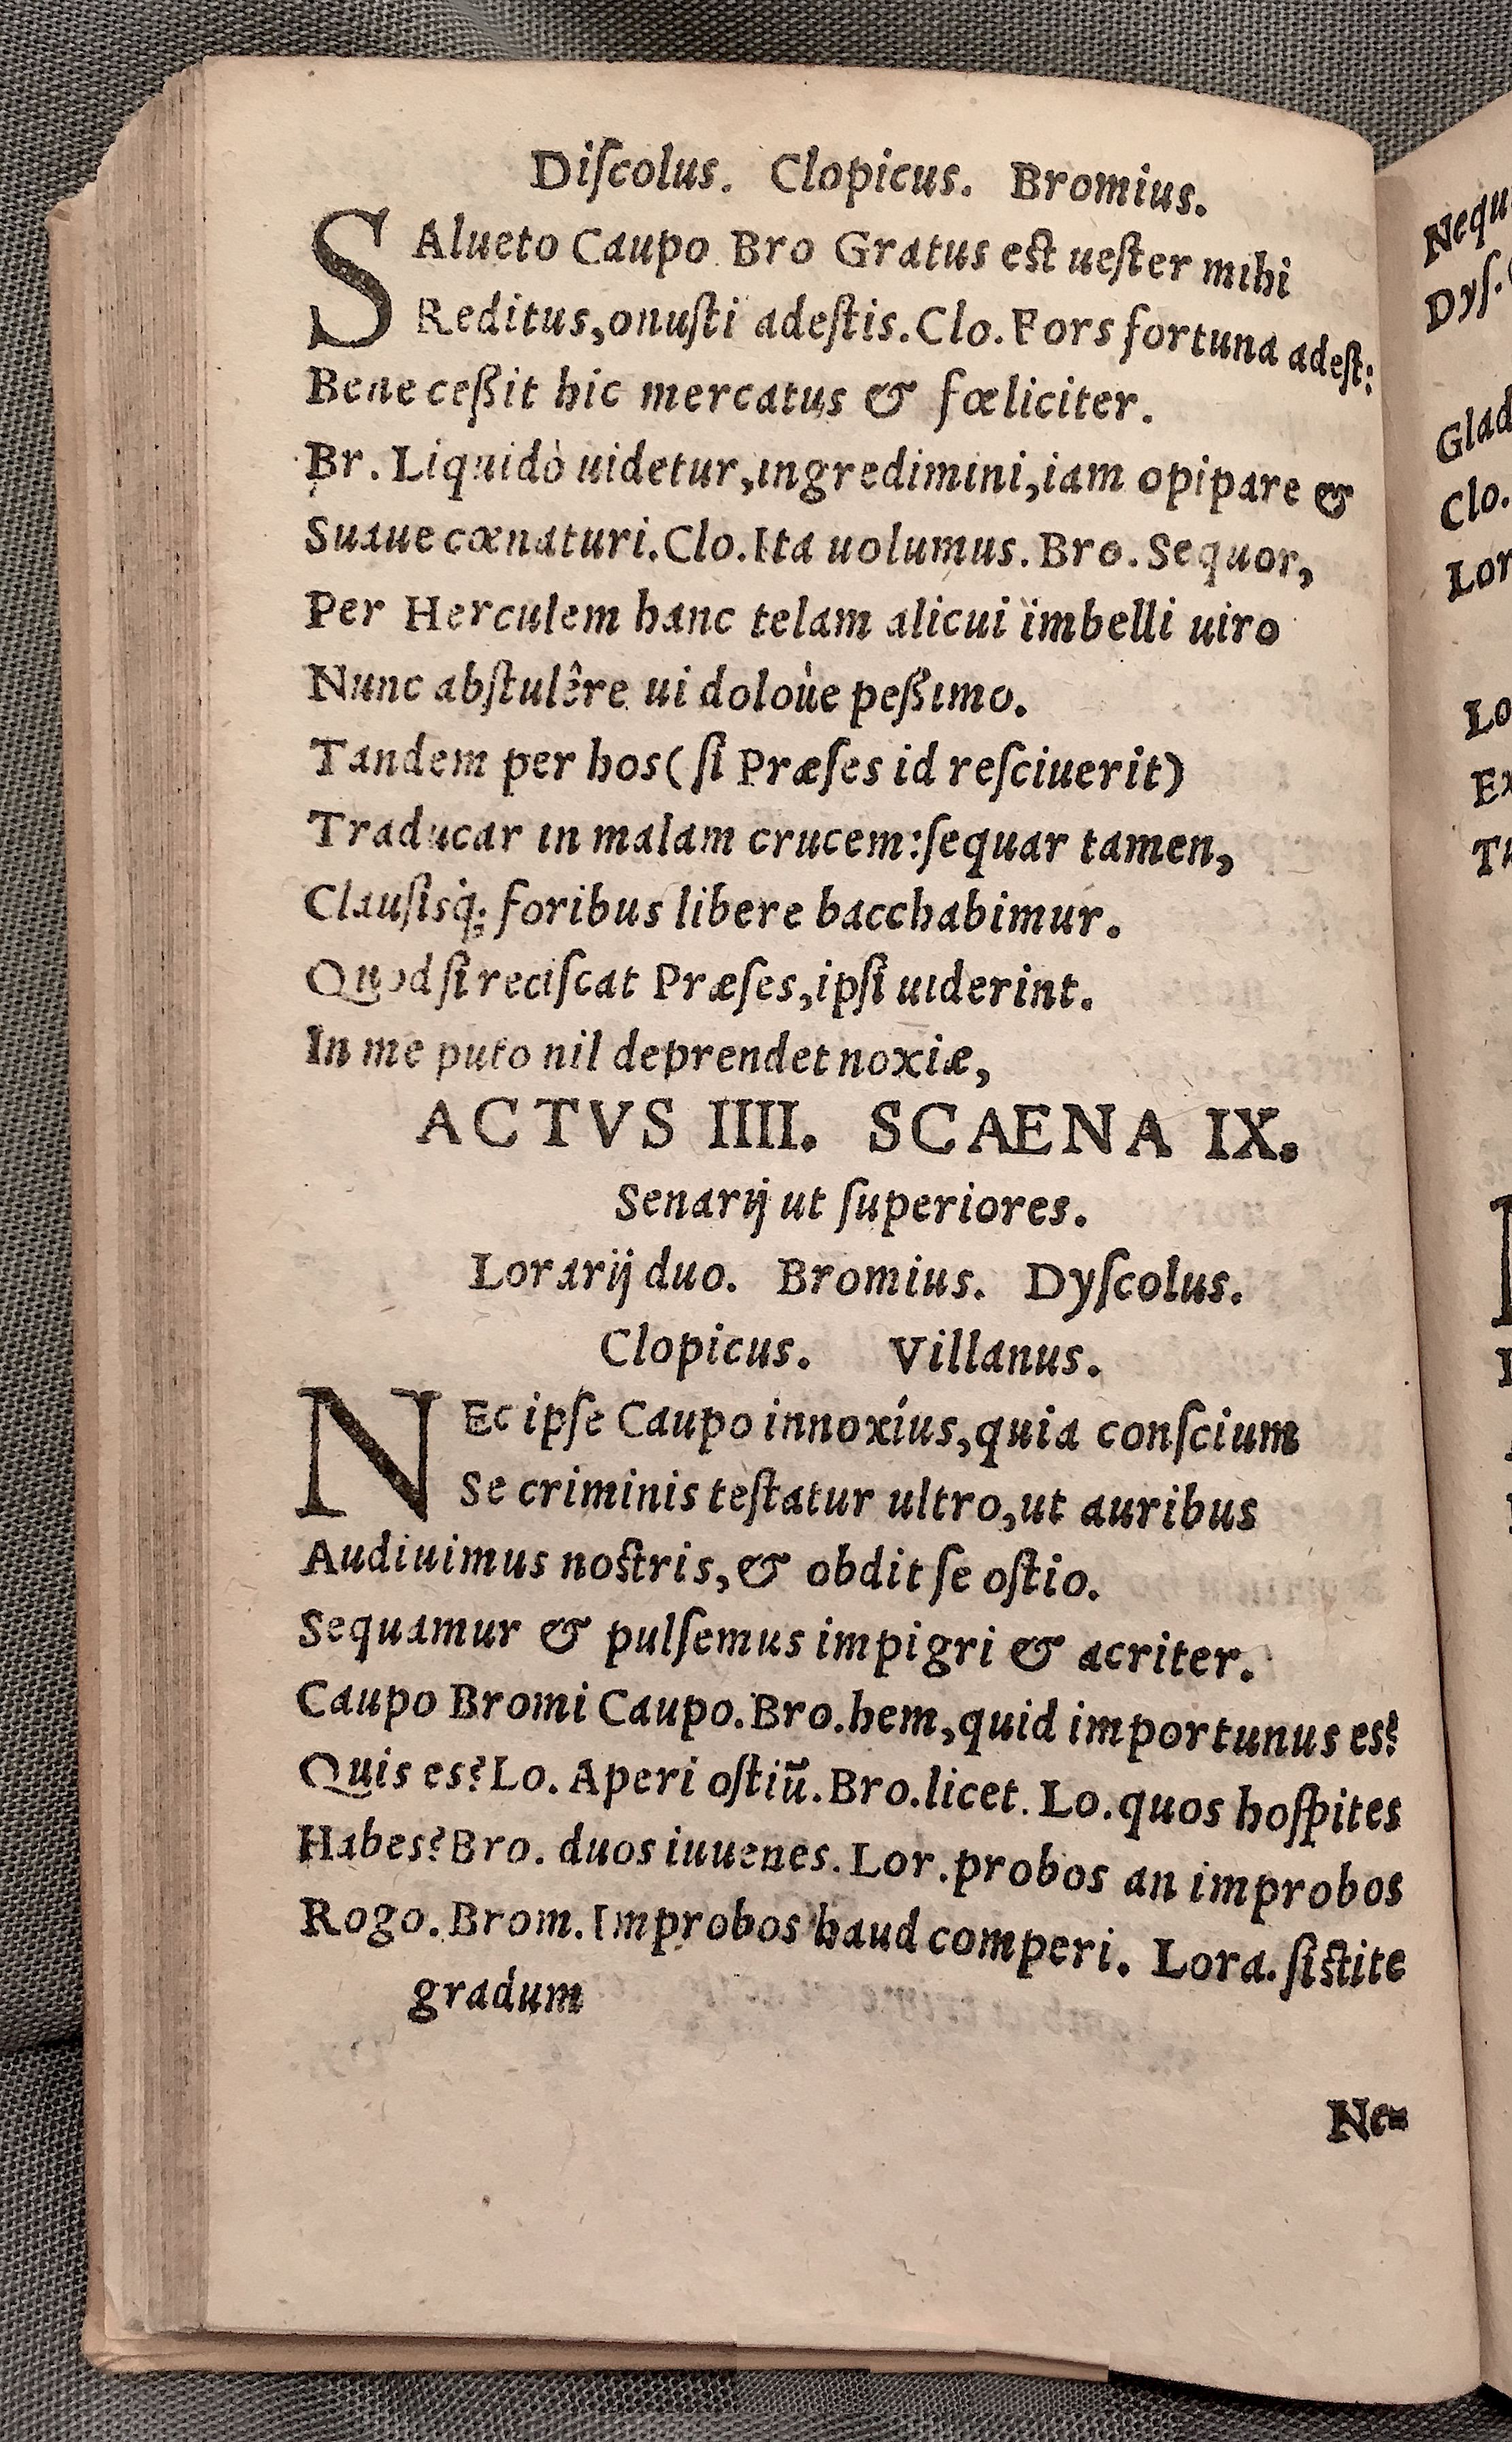 Diſcolus. Clopicus. Bromius.
SAlueto Caupo Bro Gratus eſt ueſter mihi
Reditus, onuſti adeſtis. Clo. Fors fortuna adeſt:
Bene ceßit hic mercatus & fœliciter.
Br. Liquidò uidetur, ingredimini, iam opipare &
Suaue cœnaturi. Clo. Ita uolumus. Bro. Sequor,
Per Herculem hanc telam alicui ïmbelli uiro
Nunc abſtulêre ui doloùe peßimo.
Tandem per hos (ſi Præſes id reſciuerit)
Traducar in malam crucem: ſequar tamen,
Clauſisq́; foribus libere bacchabimur.
Quod ſi reciſcat Præſes, ipſi uiderint.
In me puto nil deprendet noxiæ,
ACTVS IIII. SCAENA IX.
Senarij ut ſuperiores.
Lorarij duo. Bromius. Dyſcolus.
Clopicus. Villanus.
NEc ipſe Caupo innoxíus, quia conſcium
Se criminis teſtatur ultro, ut auribus
Audiuimus noſtris, & obdit ſe oſtio.
Sequamur & pulſemus impigri & acriter.
Caupo Bromi Caupo. Bro. hem, quid importunus es?
Quis es? Lo. Aperi oſtiū. Bro. licet. Lo. quos hoſpites
Habes? Bro. duos iuuenes. Lor. probos an improbos
Rogo. Brom. Improbos haud comperi. Lora. ſiſtite
gradum
Ne=
Dyſ.
Glad
Clo.
Lor
Lo
Ex